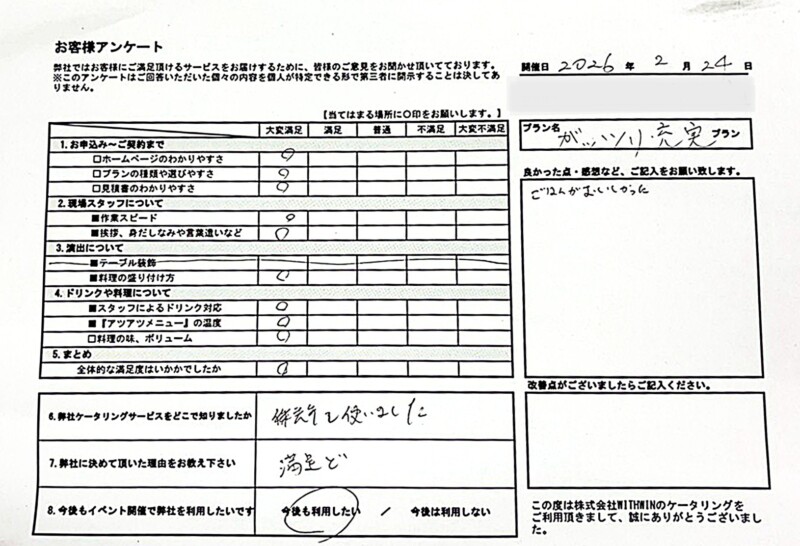 お客様アンケート
弊社ではお客様にご満足頂けるサービスをお届けするために、皆様のご意見をお聞かせ頂いております。
※このアンケートはご回答いただいた個々の内容を個人が特定できる形で第三者に開示することは決してあ
りません。
開催日 2026 年 2 月 24 日
【当てはまる場所に〇印をお願いします。】
大変満足 満足 普通 不満足 大変不満足
1. お申込み〜ご契約まで
□ホームページのわかりやすさ 〇
□プランの種類や選びやすさ 〇
□見積書のわかりやすさ 〇
2. 現場スタッフについて
■作業スピード 〇
■挨拶、身だしなみや言葉遣いなど 〇
3. 演出について
■テーブル装飾
■料理の盛り付け方 〇
4. ドリンクや料理について
■スタッフによるドリンク対応 〇
■『アツアツメニュー』の温度 〇
□料理の味、ボリューム 〇
5. まとめ
全体的な満足度はいかがでしたか 〇
プラン名
ガッツリ充実 プラン
良かった点・感想など、ご記入をお願い致します。
ごはんがおいしかった
改善点がございましたらご記入ください。
6. 弊社ケータリングサービスをどこで知りましたか
使いました
7. 弊社に決めて頂いた理由をお教え下さい
満足ど
8. 今後もイベント開催で弊社を利用したいです
今後も利用したい / 今後は利用しない
この度は株式会社WITHWINのケータリングを
ご利用頂きまして、誠にありがとうございまし
た。